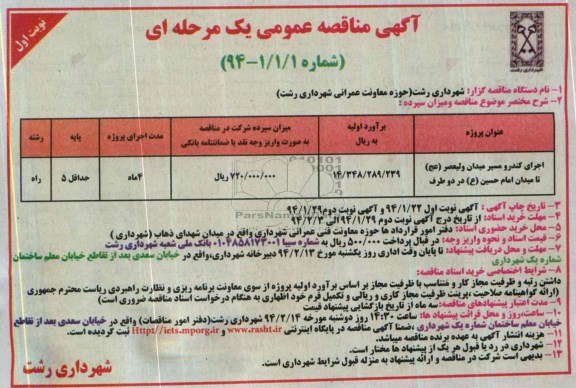 نوبت اول
آگهی مناقصه عمومی یک مرحله ای
(شماره ۹۴-۱/۱/۱)
شهرداری رشت
۱- نام دستگاه مناقصه گزار: شهرداری رشت(حوزه معاونت عمرانی شهرداری رشت)
۲- شرح مختصر موضوع مناقصه ومیزان سپرده :
عنوان پروژه
برآورد اولیه به ریال
میزان سپرده شرکت در مناقصه به صورت واریز وجه نقد یا ضمانتنامه بانکی
مدت اجرای پروژه
پایه
رشته
اجرای کندرو مسیر میدان ولیعصر (عج) تا میدان امام حسین (ع) در دو طرف
۱۴/۳۴۸/۲۸۹/۲۳۹
۷۲۰/۰۰۰/۰۰۰ ریال
۴ماه
حداقل ۵
راه
۳- تاریخ چاپ آگهی : آگهی نوبت اول ۹۴/۱/۲۲ و آگهی نوبت دوم۹۴/۱/۲۹
۴- مهلت خرید اسناد: از تاریخ درج آگهی نوبت دوم ۹۴/۱/۲۹ الی ۹۴/۲/۳
۵- محل خرید حضوری اسناد: دفتر امور قرارداد ها حوزه معاونت فنی عمرانی شهرداری واقع در میدان شهدای ذهاب (شهرداری )
۶- قیمت اسناد و نحوه واریز وجه: در قبال پرداخت ۵۰۰/۰۰۰ ریال به شماره سیبا ۰۱۰۴۸۵۸۱۷۳۰۰۱ بانک ملی شعبه شهرداری رشت
۷- مهلت و محل دریافت پیشنهاد: تا پایان وقت اداری روز یکشنبه مورخ ۹۴/۲/۱۳ دبیرخانه شهرداری،واقع در خیابان سعدی بعد از تقاطع خیابان معلم ساختمان
شماره یک شهرداری
۸- شرایط اختصاصی خرید اسناد مناقصه:
داشتن رتبه و ظرفیت مجاز کار و متناسب با ظرفیت مجاز بر اساس برآورد اولیه پروژه از سوی معاونت برنامه ریزی و نظارت راهبردی ریاست محترم جمهوری
(ارائه گواهینامه صلاحیت ،پرینت ظرفیت مجاز کاری و ریالی و تکمیل فرم خود اظهاری به هنگام درخواست اسناد مناقصه ضروری است)
۹- مدت اعتبار پیشنهادهای مناقصه: سه ماه از تاریخ بازگشایی پیشنهاد قیمت
۱۰- ساعت،روز و محل قرائت پیشنهاد ها: ساعت ۱۴:۳۰ روز دوشنبه مورخه ۹۴/۲/۱۴ شهرداری رشت(دفتر امور مناقصات) واقع در خیابان سعدی بعد از تقاطع
خیابان معلم ساختمان شماره یک شهرداری ،ضمنا آگهی مناقصه در پایگاه اینترنتی www.rasht.ir و Http//iets.mporg.ir ثبت گردیده است.
۱۱- هزینه انتشار آگهی به عهده برنده مناقصه میباشد.
۱۲- شهرداری در رد یا قبول هر یک از پیشنهاد ها مختار است.
۱۳- بدیهی است شرکت در مناقصه و ارائه پیشنهاد به منزله قبول شرایط شهرداری است.
شهرداری رشت